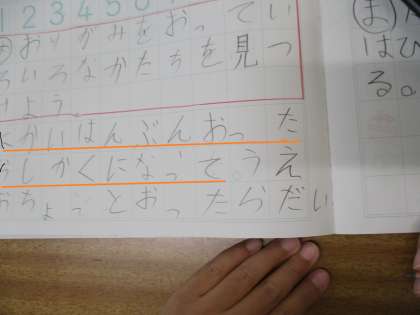 1 2 3 4 5 6
おりがみをおってい
ろいろなかたちを見つ
けよう。
かいはんぶんおった
しかくになって。うえ
おちょっとおったらだい
ま
はひ
る。